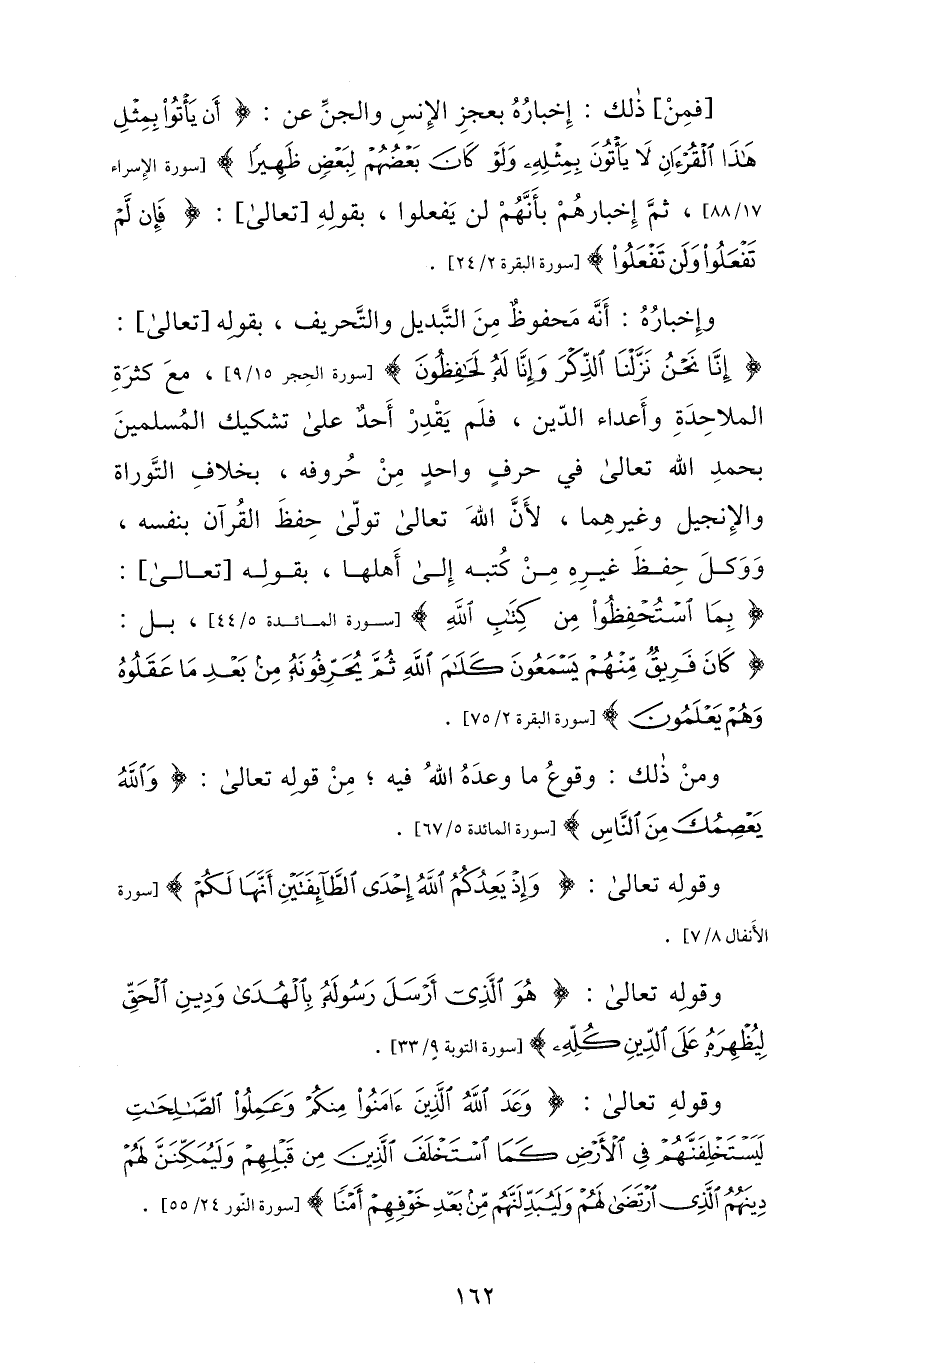 [فمِنْ] ذٰلك : إخبارُهُ بعجزِ الإنسِ والجنِّ عن : ﴿ أَن يَأْتُوا۟ بِمِثْلِ
هَٰذَا ٱلْقُرْءَانِ لَا يَأْتُونَ بِمِثْلِهِۦ وَلَوْ كَانَ بَعْضُهُمْ لِبَعْضٍ ظَهِيرًا ﴾ [سورة الإسراء
١٧/ ٨٨] ، ثمَّ إخبارهُمْ بأَنَّهُمْ لن يَفعلوا ، بقولِهِ [تعالىٰ] : ﴿ فَإِن لَّمْ
تَفْعَلُوا۟ وَلَن تَفْعَلُوا۟ ﴾ [سورة البقرة ٢/ ٢٤] .
وإِخبارُهُ : أَنَّه مَحفوظٌ مِنَ التَّبديل والتَّحريف ، بقوله [تعالىٰ] :
﴿ إِنَّا نَحْنُ نَزَّلْنَا ٱلذِّكْرَ وَإِنَّا لَهُۥ لَحَٰفِظُونَ ﴾ [سورة الحجر ١٥/ ٩] ، معَ كثرَةِ
الملاحِدَةِ وأَعداء الدّين ، فلَم يَقْدِرْ أَحدٌ علىٰ تشكيك المُسلمينَ
بحمدِ الله تعالىٰ في حرفٍ واحدٍ مِنْ حُروفه ، بخلافِ التَّوراة
والإنجيل وغيرهِما ، لأَنَّ اللهَ تعالىٰ تولّىٰ حِفظَ القُرآن بنفسه ،
وَوَكلَ حِفظَ غيرِهِ مِنْ كُتبه إلىٰ أَهلها ، بقوله [تعالىٰ] :
﴿ بِمَا ٱسْتُحْفِظُوا۟ مِن كِتَٰبِ ٱللَّهِ ﴾ [سورة المائدة ٥/ ٤٤] ، بل :
﴿ كَانَ فَرِيقٌ مِّنْهُمْ يَسْمَعُونَ كَلَٰمَ ٱللَّهِ ثُمَّ يُحَرِّفُونَهُۥ مِنۢ بَعْدِ مَا عَقَلُوهُ
وَهُمْ يَعْلَمُونَ ﴾ [سورة البقرة ٢/ ٧٥] .
ومنْ ذٰلك : وقوعُ ما وعدَهُ اللهُ فيه ؛ مِنْ قولِه تعالىٰ : ﴿ وَٱللَّهُ
يَعْصِمُكَ مِنَ ٱلنَّاسِ ﴾ [سورة المائدة ٥/ ٦٧] .
وقولِه تعالىٰ : ﴿ وَإِذْ يَعِدُكُمُ ٱللَّهُ إِحْدَى ٱلطَّآئِفَتَيْنِ أَنَّهَا لَكُمْ ﴾ [سورة
الأَنفال ٨/ ٧] .
وقولِه تعالىٰ : ﴿ هُوَ ٱلَّذِىٓ أَرْسَلَ رَسُولَهُۥ بِٱلْهُدَىٰ وَدِينِ ٱلْحَقِّ
لِيُظْهِرَهُۥ عَلَى ٱلدِّينِ كُلِّهِۦ ﴾ [سورة التوبة ٩/ ٣٣] .
وقولهِ تعالىٰ : ﴿ وَعَدَ ٱللَّهُ ٱلَّذِينَ ءَامَنُوا۟ مِنكُمْ وَعَمِلُوا۟ ٱلصَّٰلِحَٰتِ
لَيَسْتَخْلِفَنَّهُمْ فِى ٱلْأَرْضِ كَمَا ٱسْتَخْلَفَ ٱلَّذِينَ مِن قَبْلِهِمْ وَلَيُمَكِّنَنَّ لَهُمْ
دِينَهُمُ ٱلَّذِى ٱرْتَضَىٰ لَهُمْ وَلَيُبَدِّلَنَّهُم مِّنۢ بَعْدِ خَوْفِهِمْ أَمْنًا ﴾ [سورة النّور ٢٤/ ٥٥] .
١٦٢